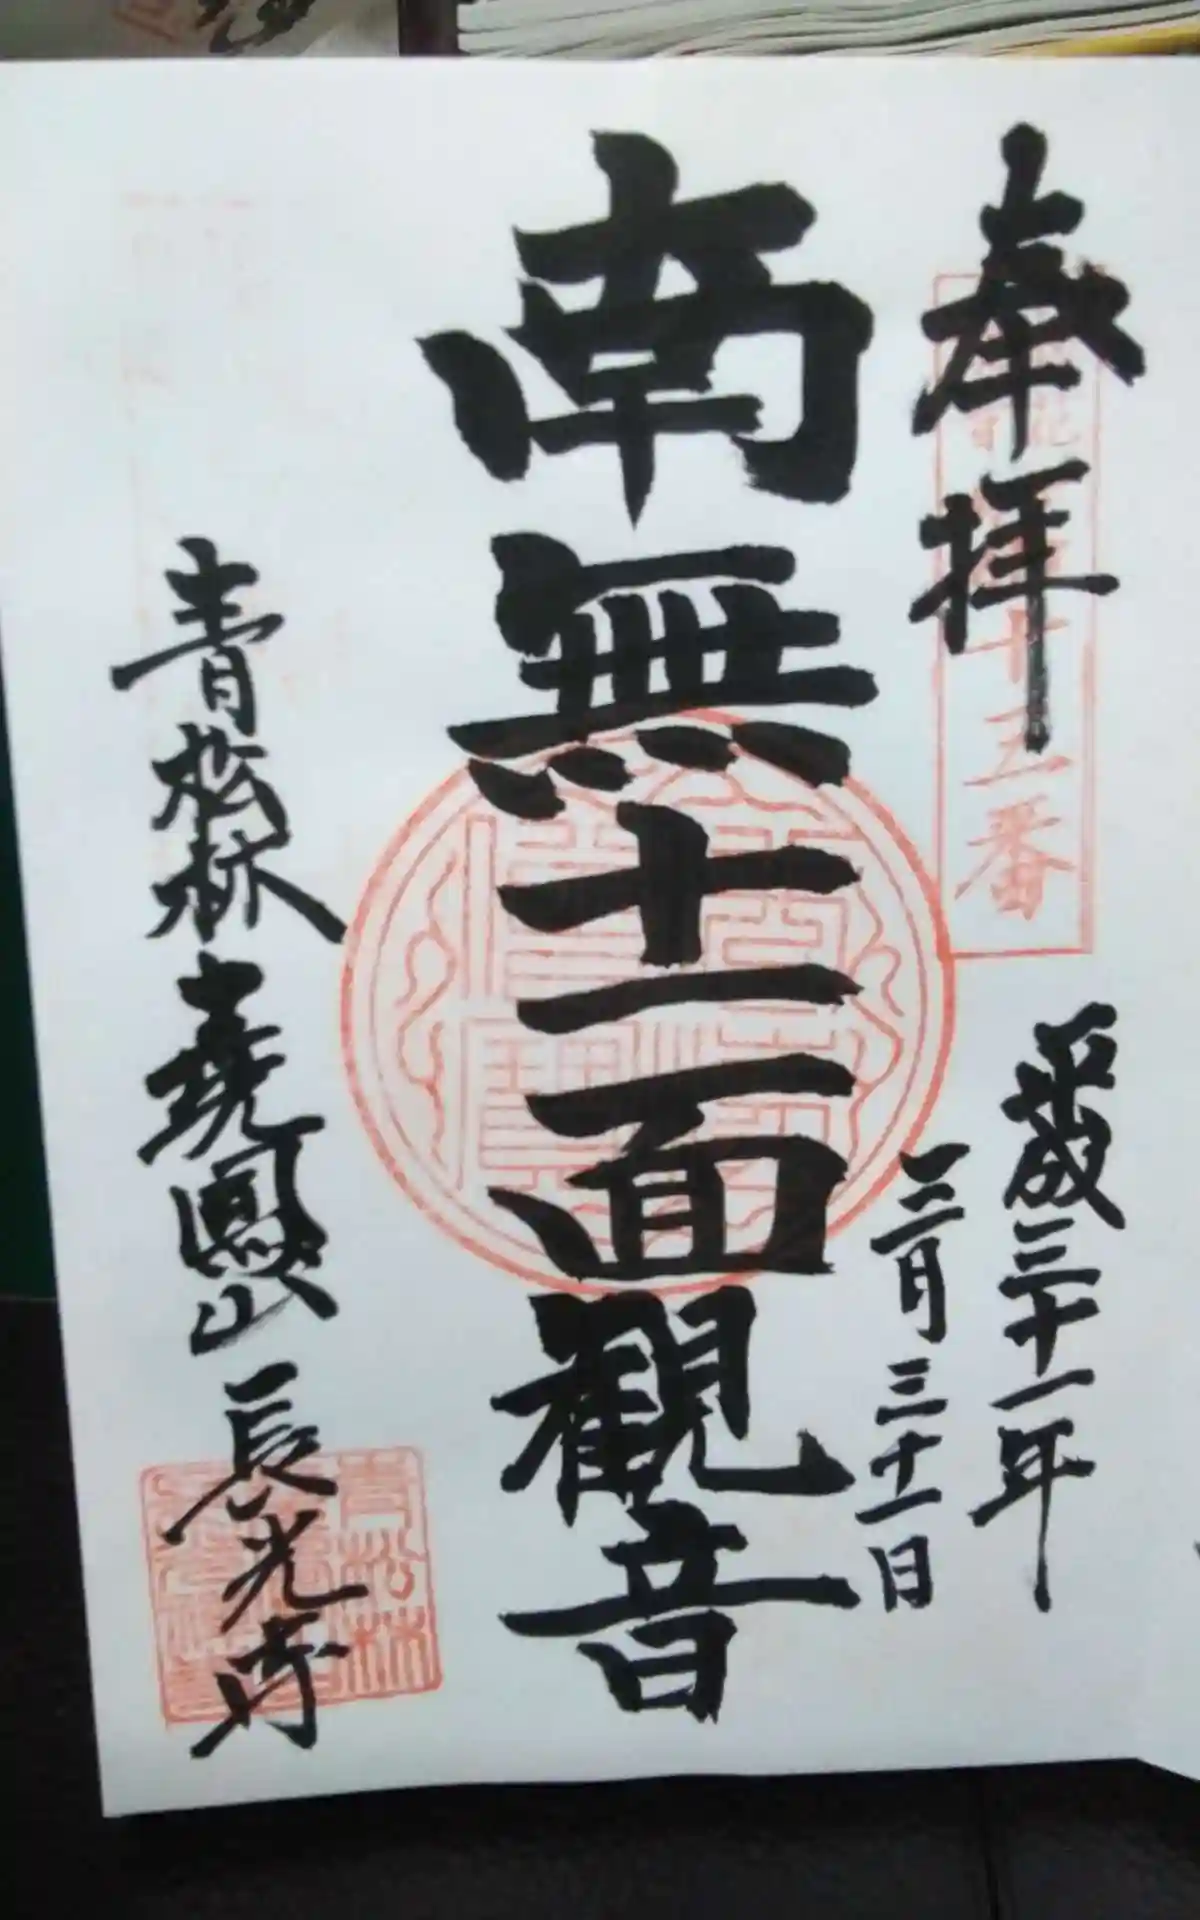 奉拝
十五番
平成三十一年
三月三十一日
南無十一面観音
青松林
青松林 堯鳳山 長光寺